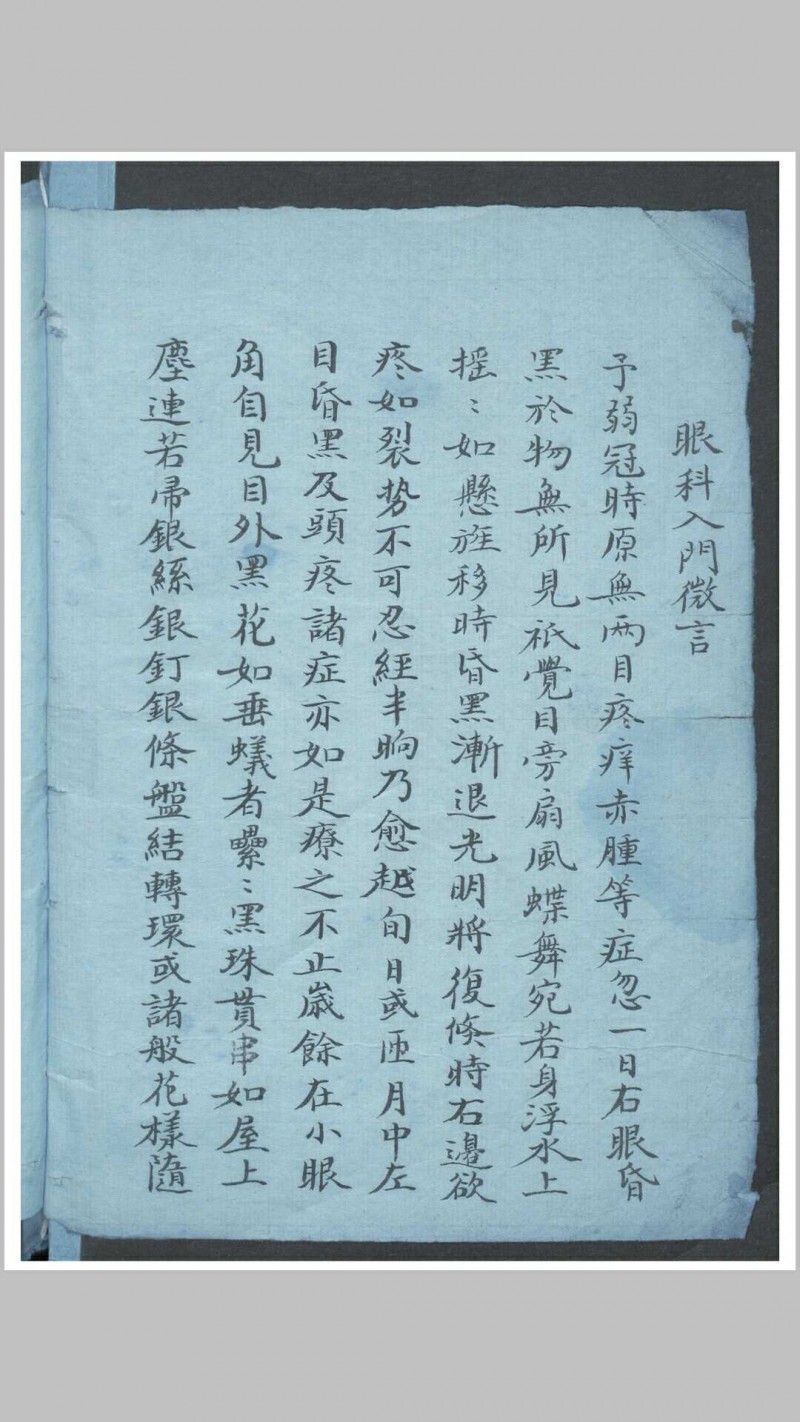 眼科入門微言
予弱冠時原無両目疼痒赤腫等症忽一日右眼昏
黑於物無所見祇覺目旁扇風蝶舞宛若身浮水上
摇〻如懸旌移時昏黑漸退光明將復倐時右邉欲
疼如裂势不可忍經半晌乃愈越旬日或匝月中左
目昏黑及頭疼諸症亦如是療之不止嵗餘在小眼
角自見目外黑花如垂蟻者纍〻黑珠貫串如屋上
塵連若帚銀絲銀釘銀條盤結轉環或諸般花樣隨